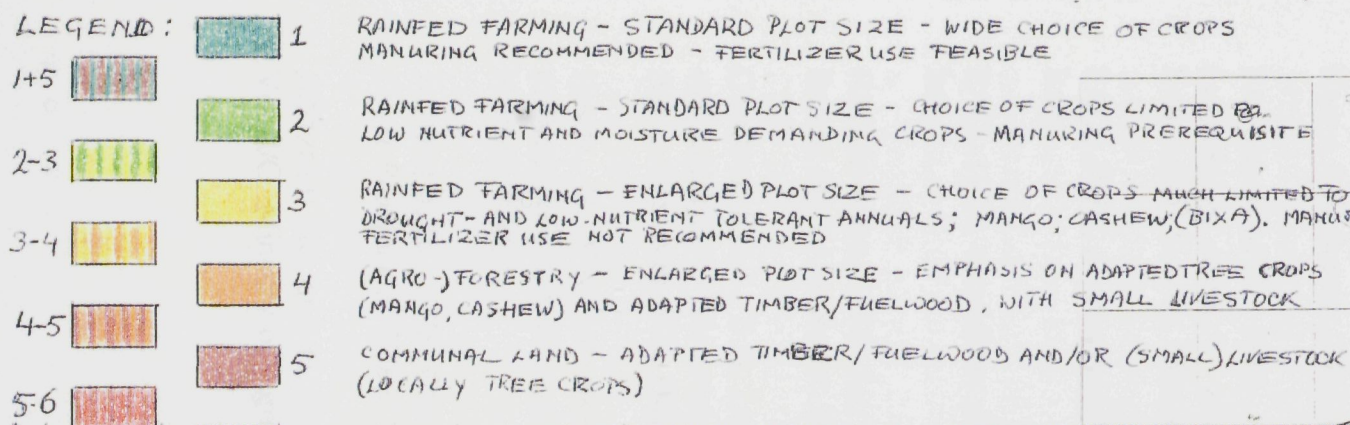 LEGEND:
1 RAINFED FARMING - STANDARD PLOT SIZE - WIDE CHOICE OF CROPS
MANURING RECOMMENDED - FERTILIZER USE FEASIBLE
1+5
2 RAINFED FARMING - STANDARD PLOT SIZE - CHOICE OF CROPS LIMITED
LOW NUTRIENT AND MOISTURE DEMANDING CROPS - MANURING PREREQUISITE
2-3
3 RAINFED FARMING - ENLARGED PLOT SIZE - CHOICE OF CROPS MUCH LIMITED TO
DROUGHT- AND LOW-NUTRIENT TOLERANT ANNUALS; MANGO; CASHEW; (BIXA).
FERTILIZER USE NOT RECOMMENDED
3-4
4 (AGRO-)FORESTRY - ENLARGED PLOT SIZE - EMPHASIS ON ADAPTED TREE CROPS
(MANGO, CASHEW) AND ADAPTED TIMBER/FUELWOOD, WITH SMALL LIVESTOCK
4-5
5 COMMUNAL LAND - ADAPTED TIMBER/FUELWOOD AND/OR (SMALL) LIVESTOCK
(LOCALLY TREE CROPS)
5-6